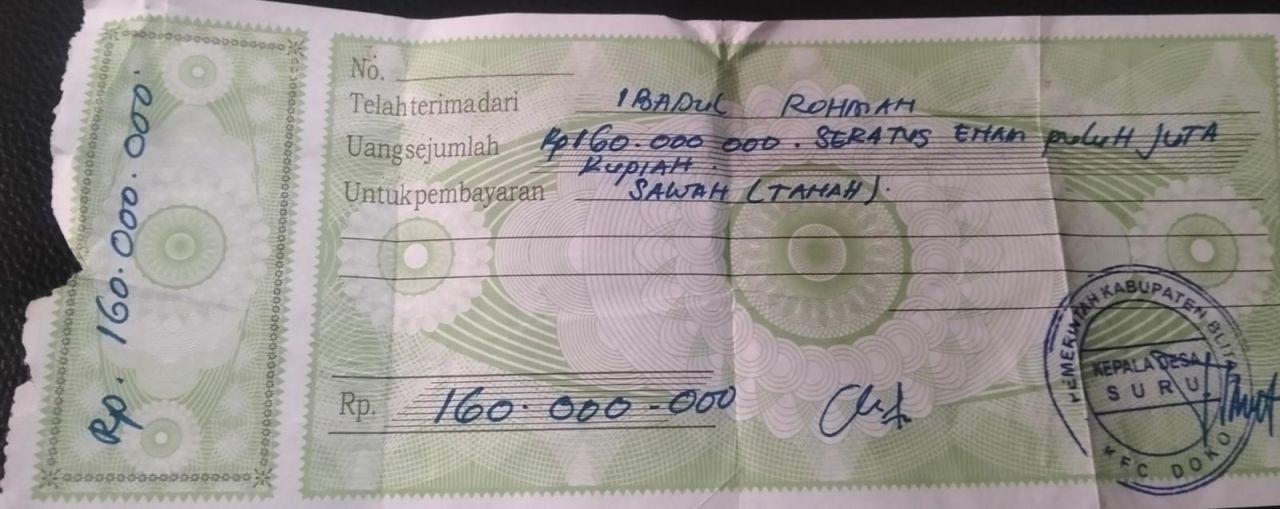 Rp. 160.000.000.
No.
Telah terima dari IBADUL ROHMAH
Uang sejumlah Rp160.000 000. SERATUS ENAM puluH JUTA
RUPIAH.
Untuk pembayaran SAWAH (TANAH).
Rp. 160.000-000
PEMERINTAH KABUPATEN BLITA
KEPALA DESA
SURU
KEC DOKO